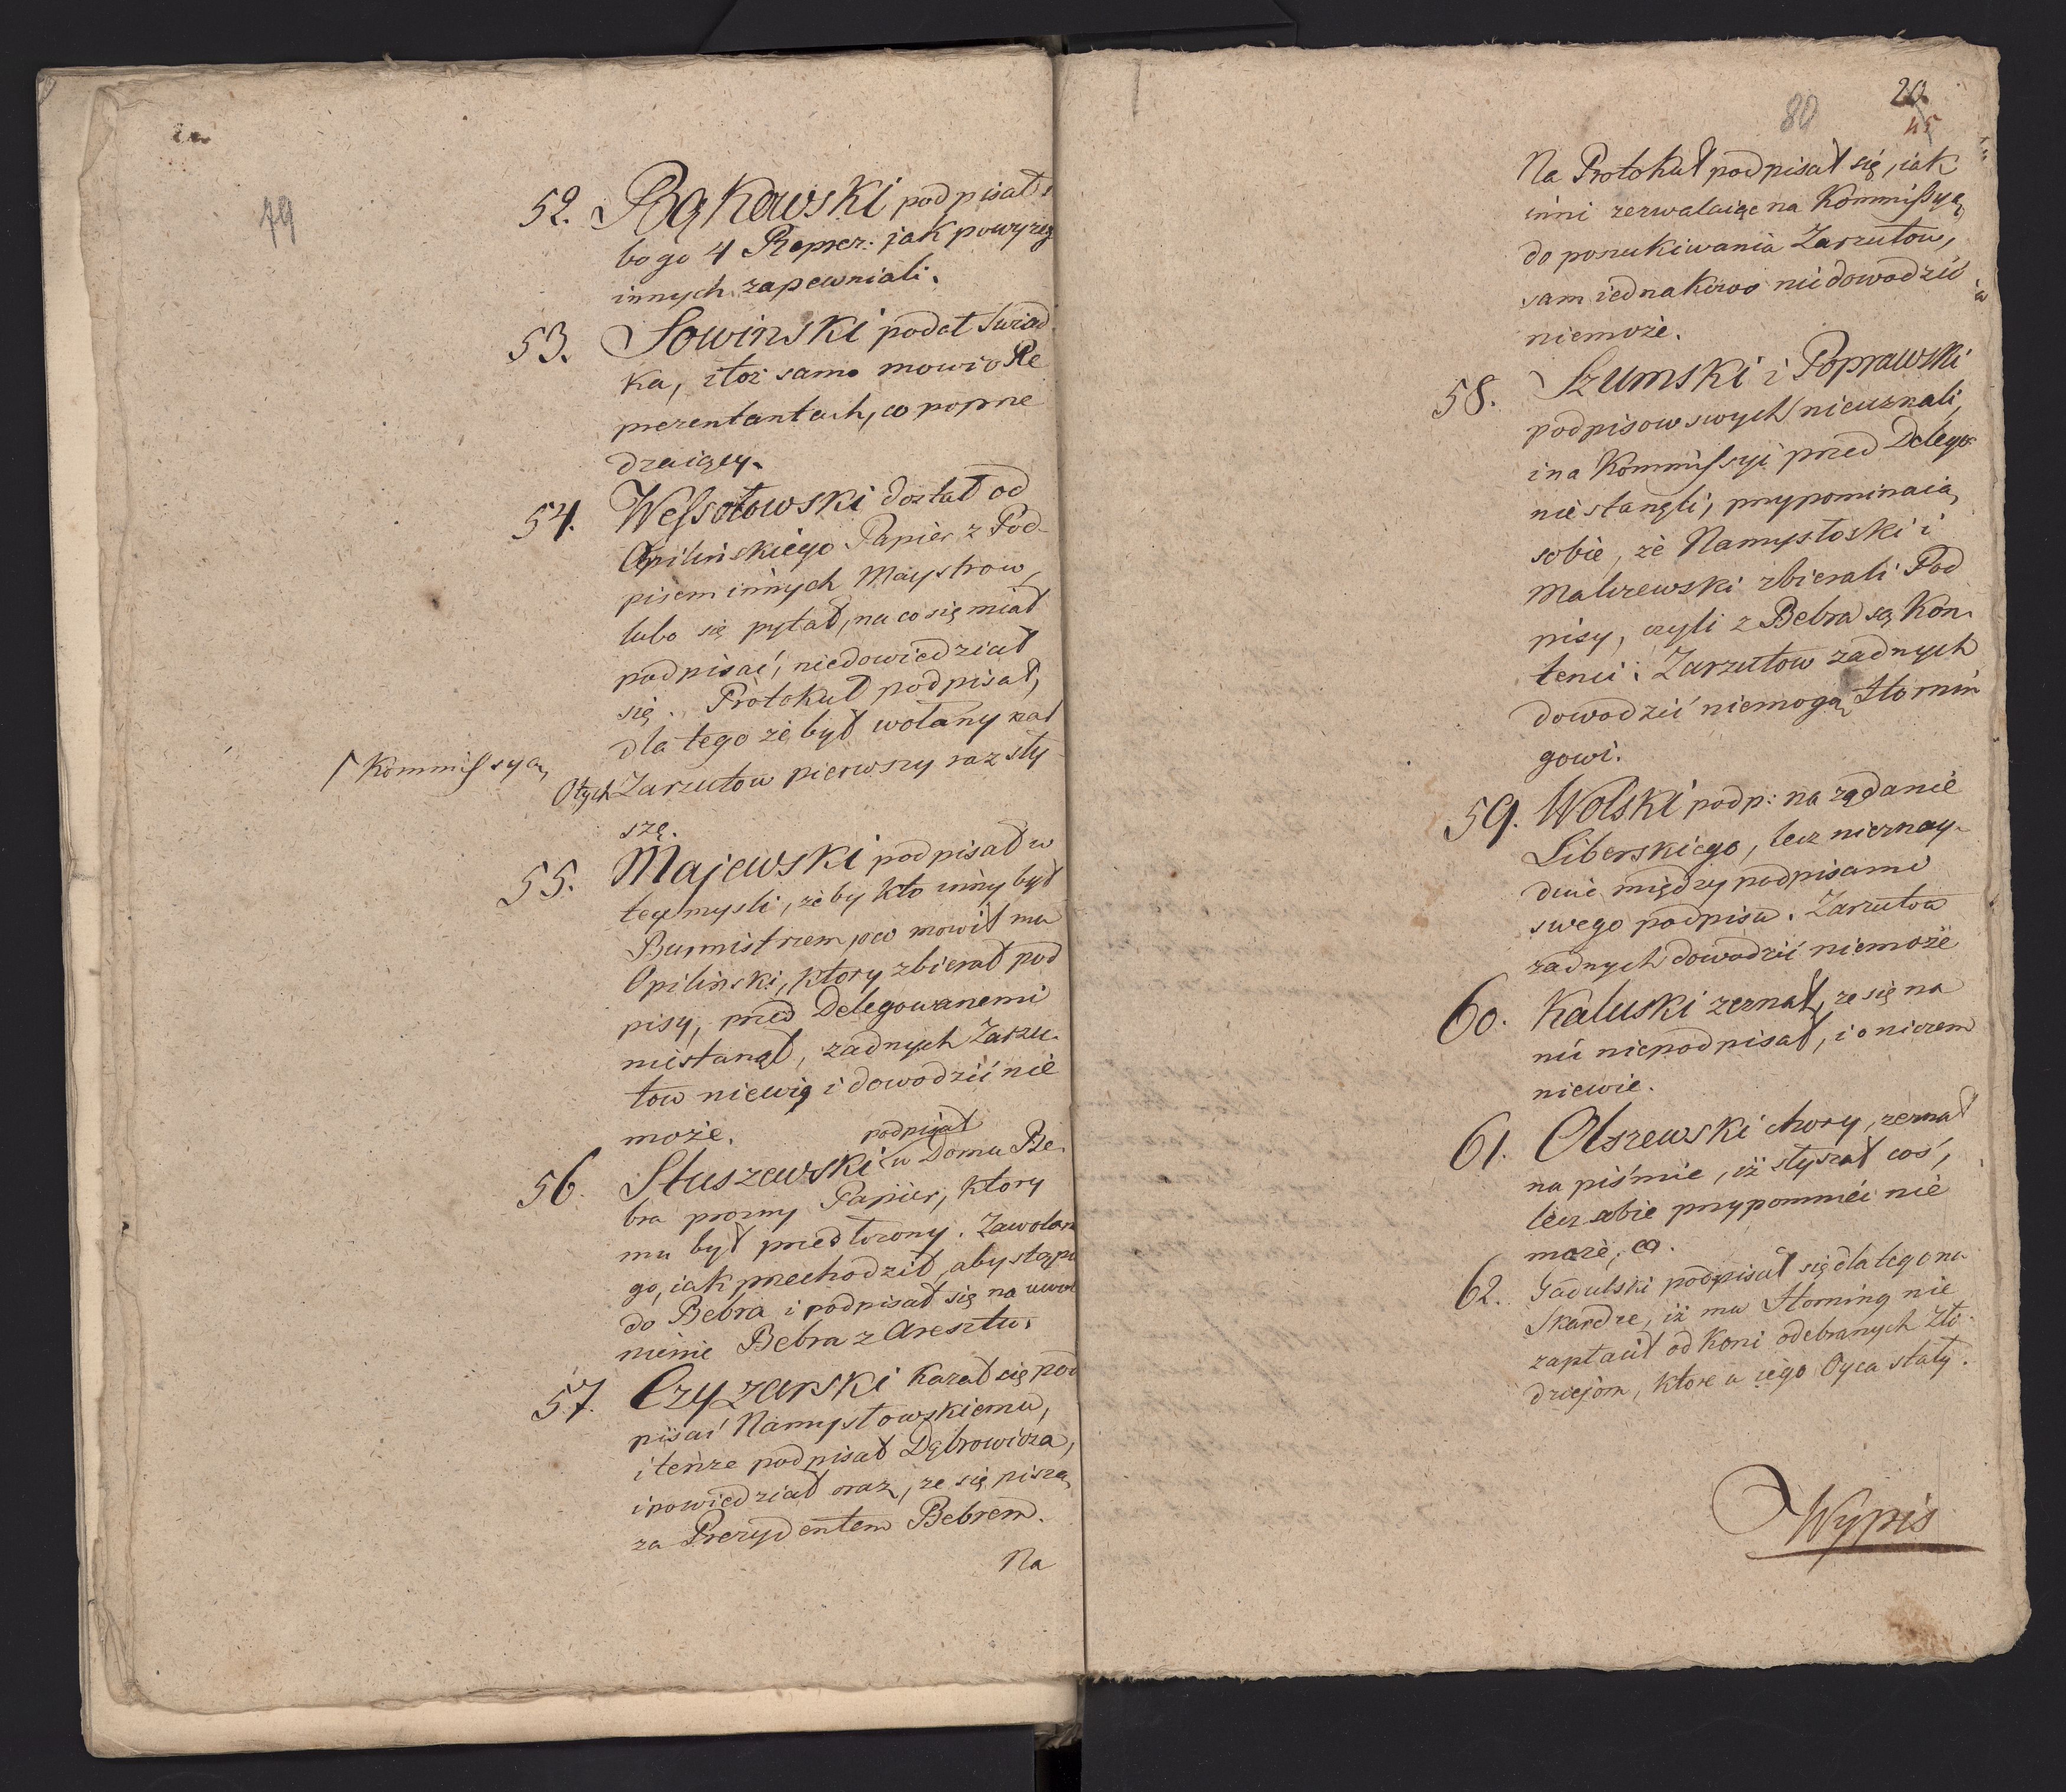 79
52. Bąkowski podpisał s
bo go 4 Reprez: jak powyzeg
innych zapewniali.
53. Sowinski podał Swiad
ka, itoż samo mowi o Re
prezentantach, co poprze
dzaiący.
54. Wessołowski dostał od
Opilinskiego Papier z Pod-
pisem innych Maystrow,
lubo się pytał, na co się miał
podpisać, niedowiedział
się. Protokuł podpisał,
dla tego że był wołany na
Kommissyą,
O tych Zarzutow pierwszy raz sły-
szę.
55. Majewski podpisał w
tey mysli, żeby kto inny był
Burmistrzem, co mowił mu
Opilinski, ktory zbierał pod
pisy, przed Delegowanemi
niestanął, zadnych Zarzu-
tow niewié i dowodzić nie
może.
podpisał
56. Słuszewski w Domu Be-
bra prozny Papier, ktory
mu był przedłozony. Zawołan
go, iak przechodził, aby stąpi
do Bebra i podpisał się na uwol
nienie Bebra z Aresztu.
57. Czyżarski Kazał się pod
pisać Namysłowskiemu,
i tenże podpisał Dąbrowicza,
i powiedział oraz, ze się piszą
za Prezydentem Bebrem.
Na
80
20
45
Na Protokuł podpisał się, iak
inni zezwalaiąc na Kommissyą
do poszukiwania Zarzutow,
sam iednakowo nie dowodzić
niemoże.
58. Szumski i Poprawski
podpisow swych nieuznali,
i na Kommissyi przed Delego:
nie stanęli, przypominaią
sobie, że Namysłoski i
Malizewski zbierali Pod
pisy, czyli z Bebra są Kon-
tenci: Zarzutow zadnych
dowodzić niemogą Hornin
gowi.
59. Wolski podp: na ządanie
Liberskiego, lecz nieznay-
duie między podpisami
swego podpisu. Zarzutow
zadnych dowodzić niemoże
60. Kaluski zeznał, ze się na
nic niepodpisał, i o niczem
niewie.
61. Olszewski chory, zeznał
na piśmie, iż słyszał coś,
lecz sobie przypomniéć nie
może, co.
62. Gadulski podpisał się dla tego na
Skardze, iż mu Horning nie
zapłacił od Koni odebranych Zło-
dziejom, ktore u iego Oyca stały.
Wypis